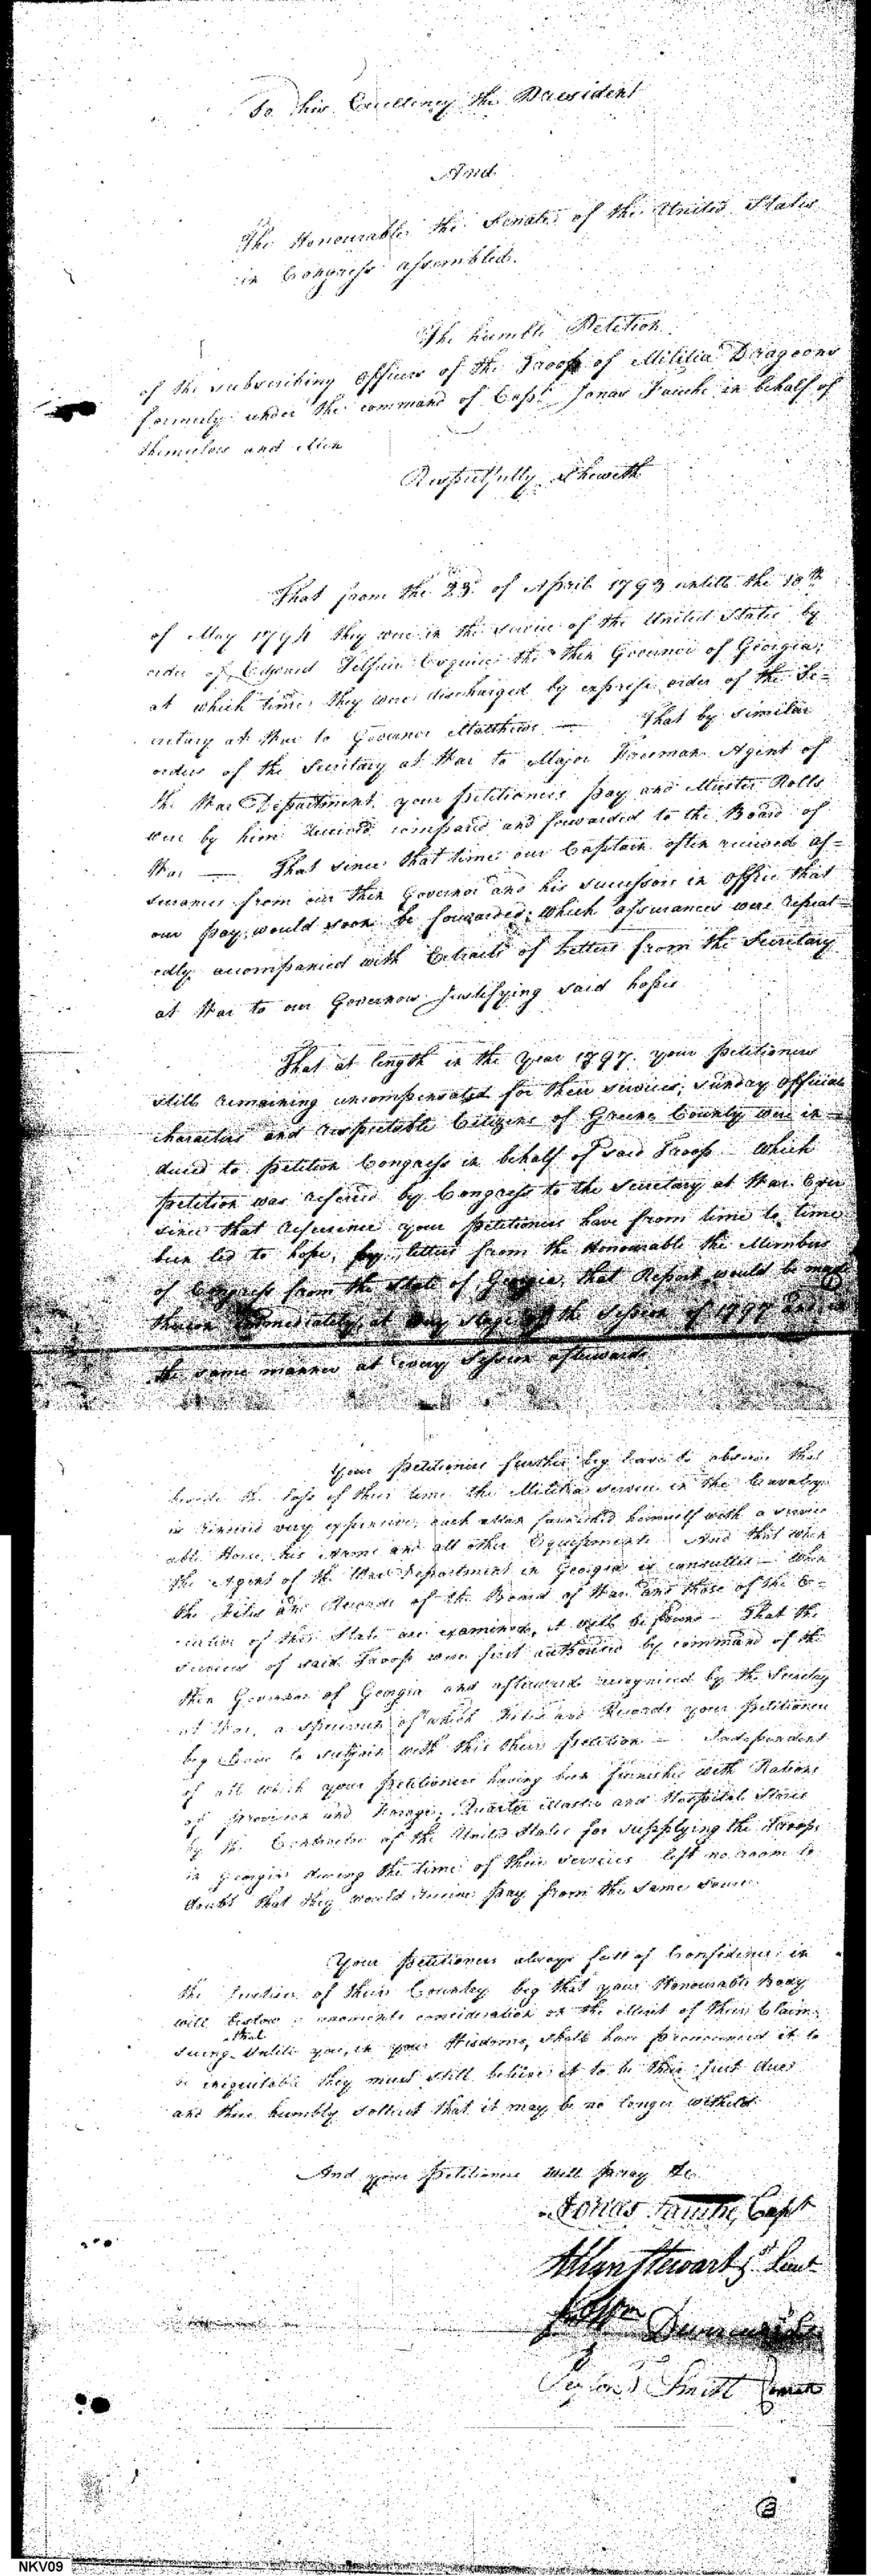 To his Excellency the President
And
The Honourable the Senate of the United States
in Congress assembled.
The humble Petition
of the subscribing officers of the Troop of Militia Dragoons
formerly under the command of Capt. Jonas Fauche in behalf of
themselves and Men
Respectfully Sheweth
That from the 23d of April 1793 untill the 10th
of May 1794 they were in the service of the United States by
order of Edward Telfair Esquire the then Governor of Georgia;
at which time they were discharged by express order of the Se=
cretary at War to Governor Matthews — That by similar
orders of the Secretary at War to Major Freeman Agent of
the War Department, your petitioners pay and Muster Rolls
were by him received compared and forwarded to the Board of
War — That since that time our Captain often received as=
surances from our then Governor and his successors in office that
our pay would soon be forwarded; which assurances were repeat=
edly accompanied with Extracts of Letters from the Secretary
at War to our Governors Justifying said hopes
That at length in the Year 1797 your petitioners
still remaining uncompensated for their services; sunday official
characters and respectable Citizens of Greene County were in=
duced to petition Congress in behalf of said Troop — Which
petition was refered by Congress to the Secretary at War. Ever
since that reference your petitioners have from time to time
been led to hope, by letters from the Honourable the Members
of Congress from the State of Georgia, that Report would be made
thereon immediately, at every stage of the Session of 1797 and in
the same manner at every Session afterwards.
Your petitioners further beg leave to observe that
beside the loss of their time the Militia service in the Cavalry
is rendered very expensive, each Man furnished himself with a service
able Horse, his Arms and all other Equipments. And that when
the Agent of the War Department in Georgia is consulted — When
the Files and Records of the Board of War and those of the Ex=
ecutive of this State are examined, it will be found — That the
services of said Troop were first authorised by command of the
then Governor of Georgia and afterwards recognised by the Secretary
at War, a specimen of which Files and Records your petitioners
beg leave to subjoin with this their petition — Independent
of all which your Petitioners having been furnished with Rations
of provision and Forage; Quarter Master and Hospital Stores
by the Contractor of the United States for supplying the Troops
in Georgia during the time of their services left no room to
doubt that they would receive pay from the same source.
Your petitioners always full of Confidence in
the Justice of their Country beg that your Honourable Body
will bestow a moments consideration on the Merit of their Claim
seing that Untill you, in your Wisdoms, shall have pronounced it to
be inequitable they must still believe it to be their just dues
and thus humbly sollicit that it may be no longer witheld
And your Petitioners will pray &c.
Jonas Fauche, Capt
Allen Stewart 1st Lieut
Peyton Smith Cornet
3
NKV09